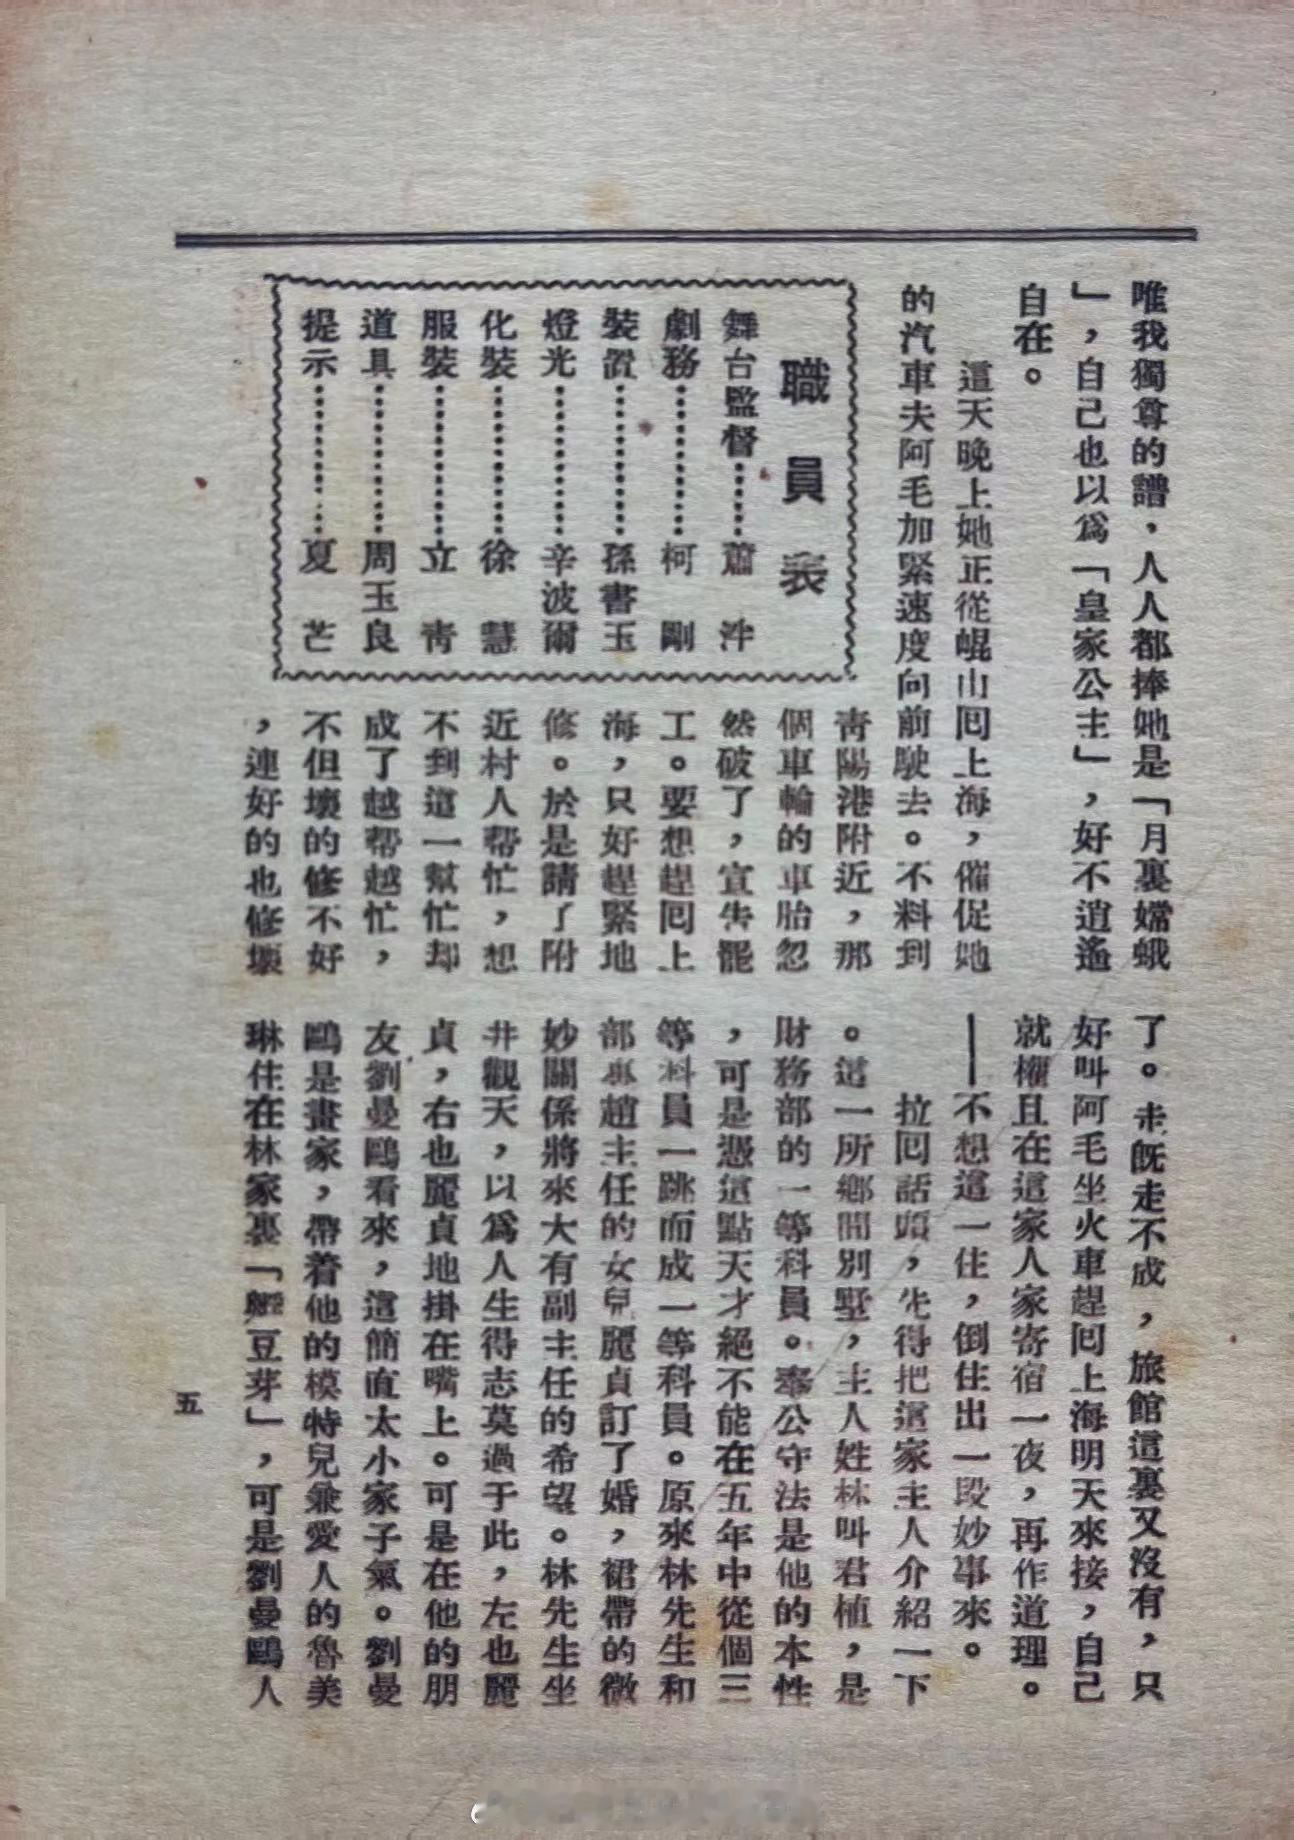 唯我獨尊的譜，人人都捧她是「月裏嫦蛾
」，自己也以爲「皇家公主」，好不逍遙
自在。
這天晚上她正從崐山囘上海，催促她
的汽車夫阿毛加緊速度向前駛去。不料到
青陽港附近，那
個車輪的車胎忽
然破了，宣吿罷
工。要想趕囘上
海，只好趕緊地
修。於是請了附
近村人帮忙，想
不到這一幫忙却
成了越帮越忙，
不但壞的修不好
，連好的也修壞
職員表
舞台監督………蕭泮
劇務………柯剛
裝置………孫書玉
燈光………辛波爾
化裝………徐慧
服裝………立青
道具………周玉良
提示………夏芒
了。走旣走不成，旅館這裏又沒有，只
好叫阿毛坐火車趕囘上海明天來接，自己
就權且在這家人家寄宿一夜，再作道理。
——不想這一住，倒住出一段妙事來。
拉囘話頭，先得把這家主人介紹一下
。這一所鄉間別墅，主人姓林叫君植，是
財務部的一等科員。奉公守法是他的本性
，可是憑這點天才絕不能在五年中從個三
等科員一跳而成一等科員。原來林先生和
部裏趙主任的女兒麗貞訂了婚，裙帶的微
妙關係將來大有副主任的希望。林先生坐
井觀天，以爲人生得志莫過于此，左也麗
貞，右也麗貞地掛在嘴上。可是在他的朋
友劉曼鷗看來，這簡直太小家子氣。劉曼
鷗是畫家，帶着他的模特兒兼愛人的魯美
琳住在林家裏「孵豆芽」，可是劉曼鷗人
五